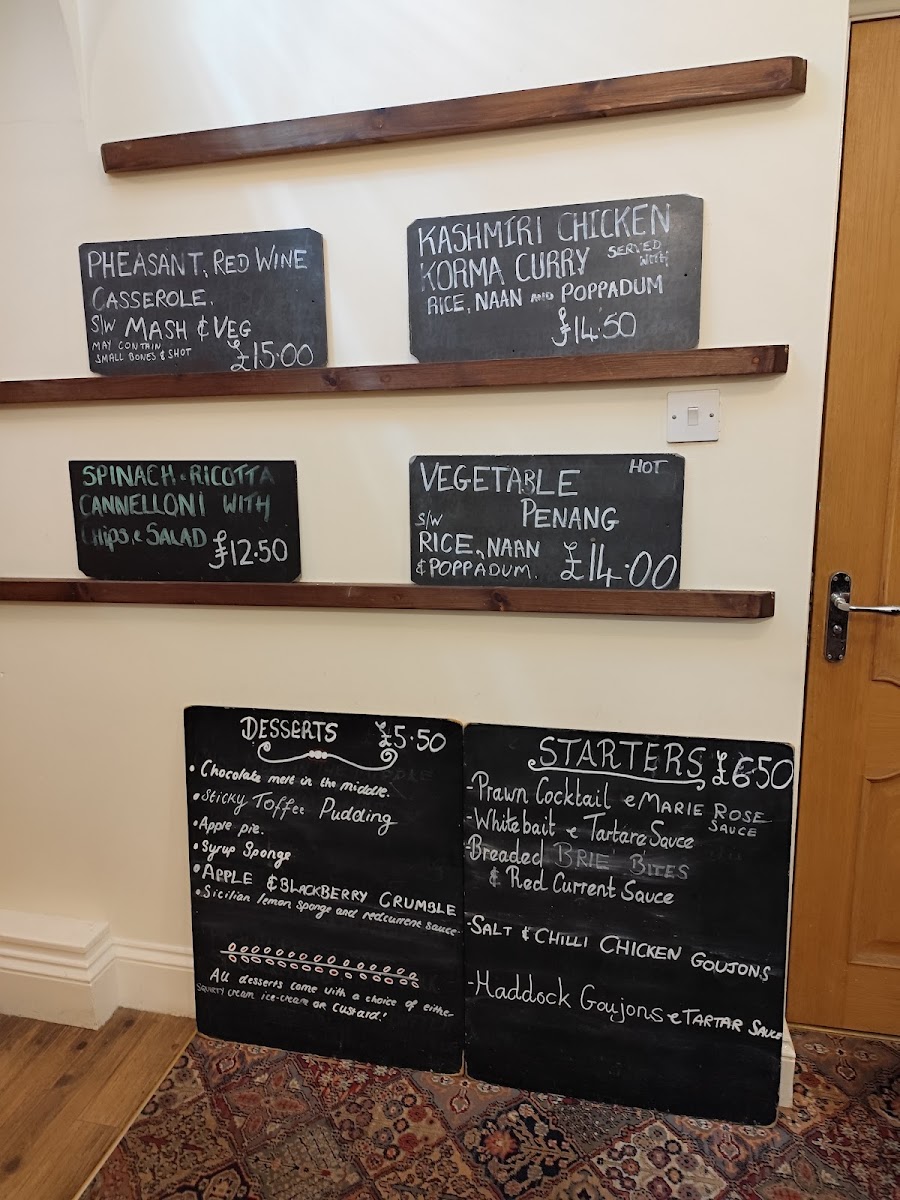 PHEASANT, RED WINE
CASSEROLE.
S/W MASH & VEG
MAY CONTAIN
SMALL BONES & SHOT
£15.00
KASHMIRI CHICKEN
KORMA CURRY SERVED WITH
RICE, NAAN AND POPPADUM
£14.50
SPINACH & RICOTTA
CANNELLONI WITH
Chips & SALAD
£12.50
VEGETABLE HOT
S/W PENANG
RICE, NAAN
& POPPADUM.
£14.00
DESSERTS £5.50
• Chocolate melt in the middle.
• Sticky Toffee Pudding
• Apple pie.
• Syrup Sponge
• APPLE & BLACKBERRY CRUMBLE
• Sicilian lemon sponge and redcurrent sauce
All desserts come with a choice of either
SQUIRTY cream ice-cream OR custard!
STARTERS £6.50
- Prawn Cocktail & MARIE ROSE
SAUCE
- Whitebait & Tartare Sauce
- Breaded BRIE BITES
& Red Current Sauce
- SALT & CHILLI CHICKEN GOUJONS
- Haddock Goujons & TARTAR SAUCE